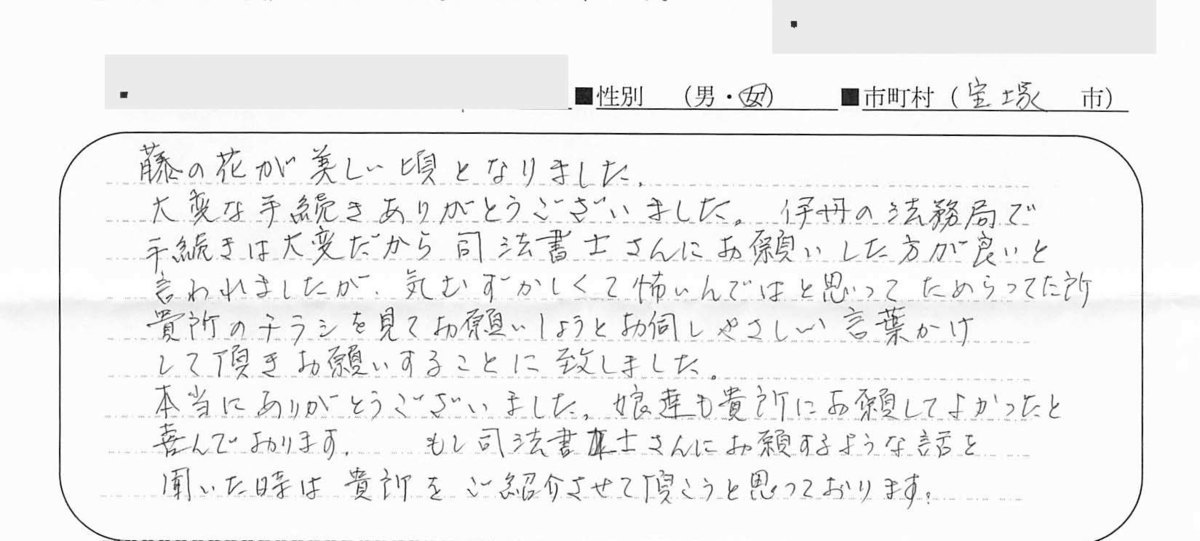 ■性別 （男・女） ■市町村（宝塚 市）
藤の花が美しい頃となりました。
大変な手続きありがとうございました。伊丹の法務局で
手続きは大変だから司法書士さんにお願いした方が良いと
言われましたが、気むずかしくて怖いんではと思ってためらってた所
貴所のチラシを見てお願いしようとお伺しやさしい言葉かけ
して頂きお願いすることに致しました。
本当にありがとうございました。娘達も貴所にお願してよかったと
喜んでおります。 もし司法書士さんにお願するような話を
聞いた時は貴所をご紹介させて頂こうと思っております。